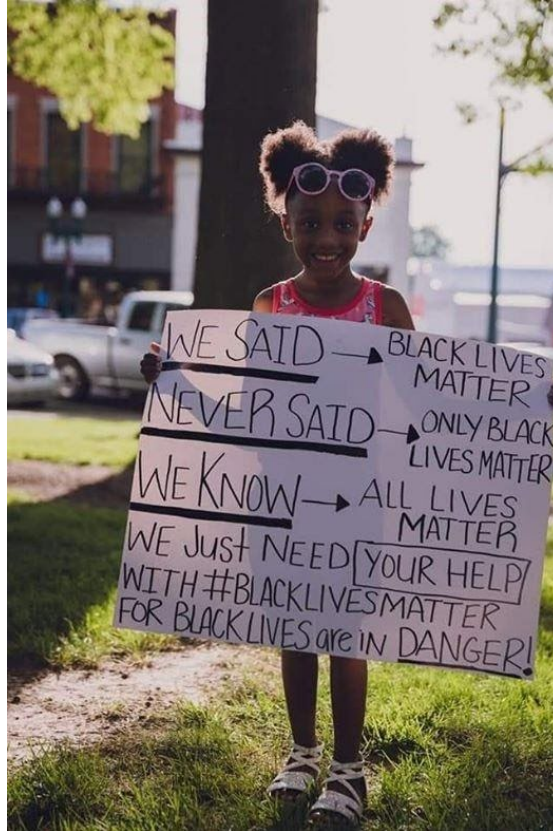 WE SAID → BLACK LIVES
MATTER
NEVER SAID → ONLY BLACK
LIVES MATTER
WE KNOW → ALL LIVES
MATTER
WE JUSt NEED YOUR HELP
WITH #BLACKLIVESMATTER
FOR BLACK LIVES are IN DANGER!